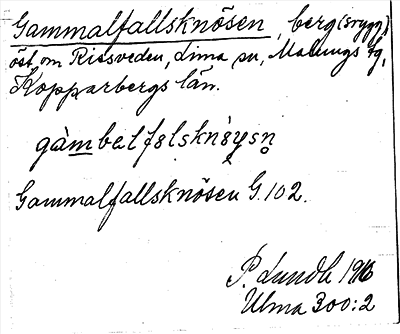 Gammalfallsknösen, berg (srygg),
öst om Rissveden, Lima sn, Malungs tg,
Kopparbergs län.
gàmbalfalsknø̀ysn̥
Gammalfallsknösen G. 102.
P. Lundh 1916
Ulma 300:2